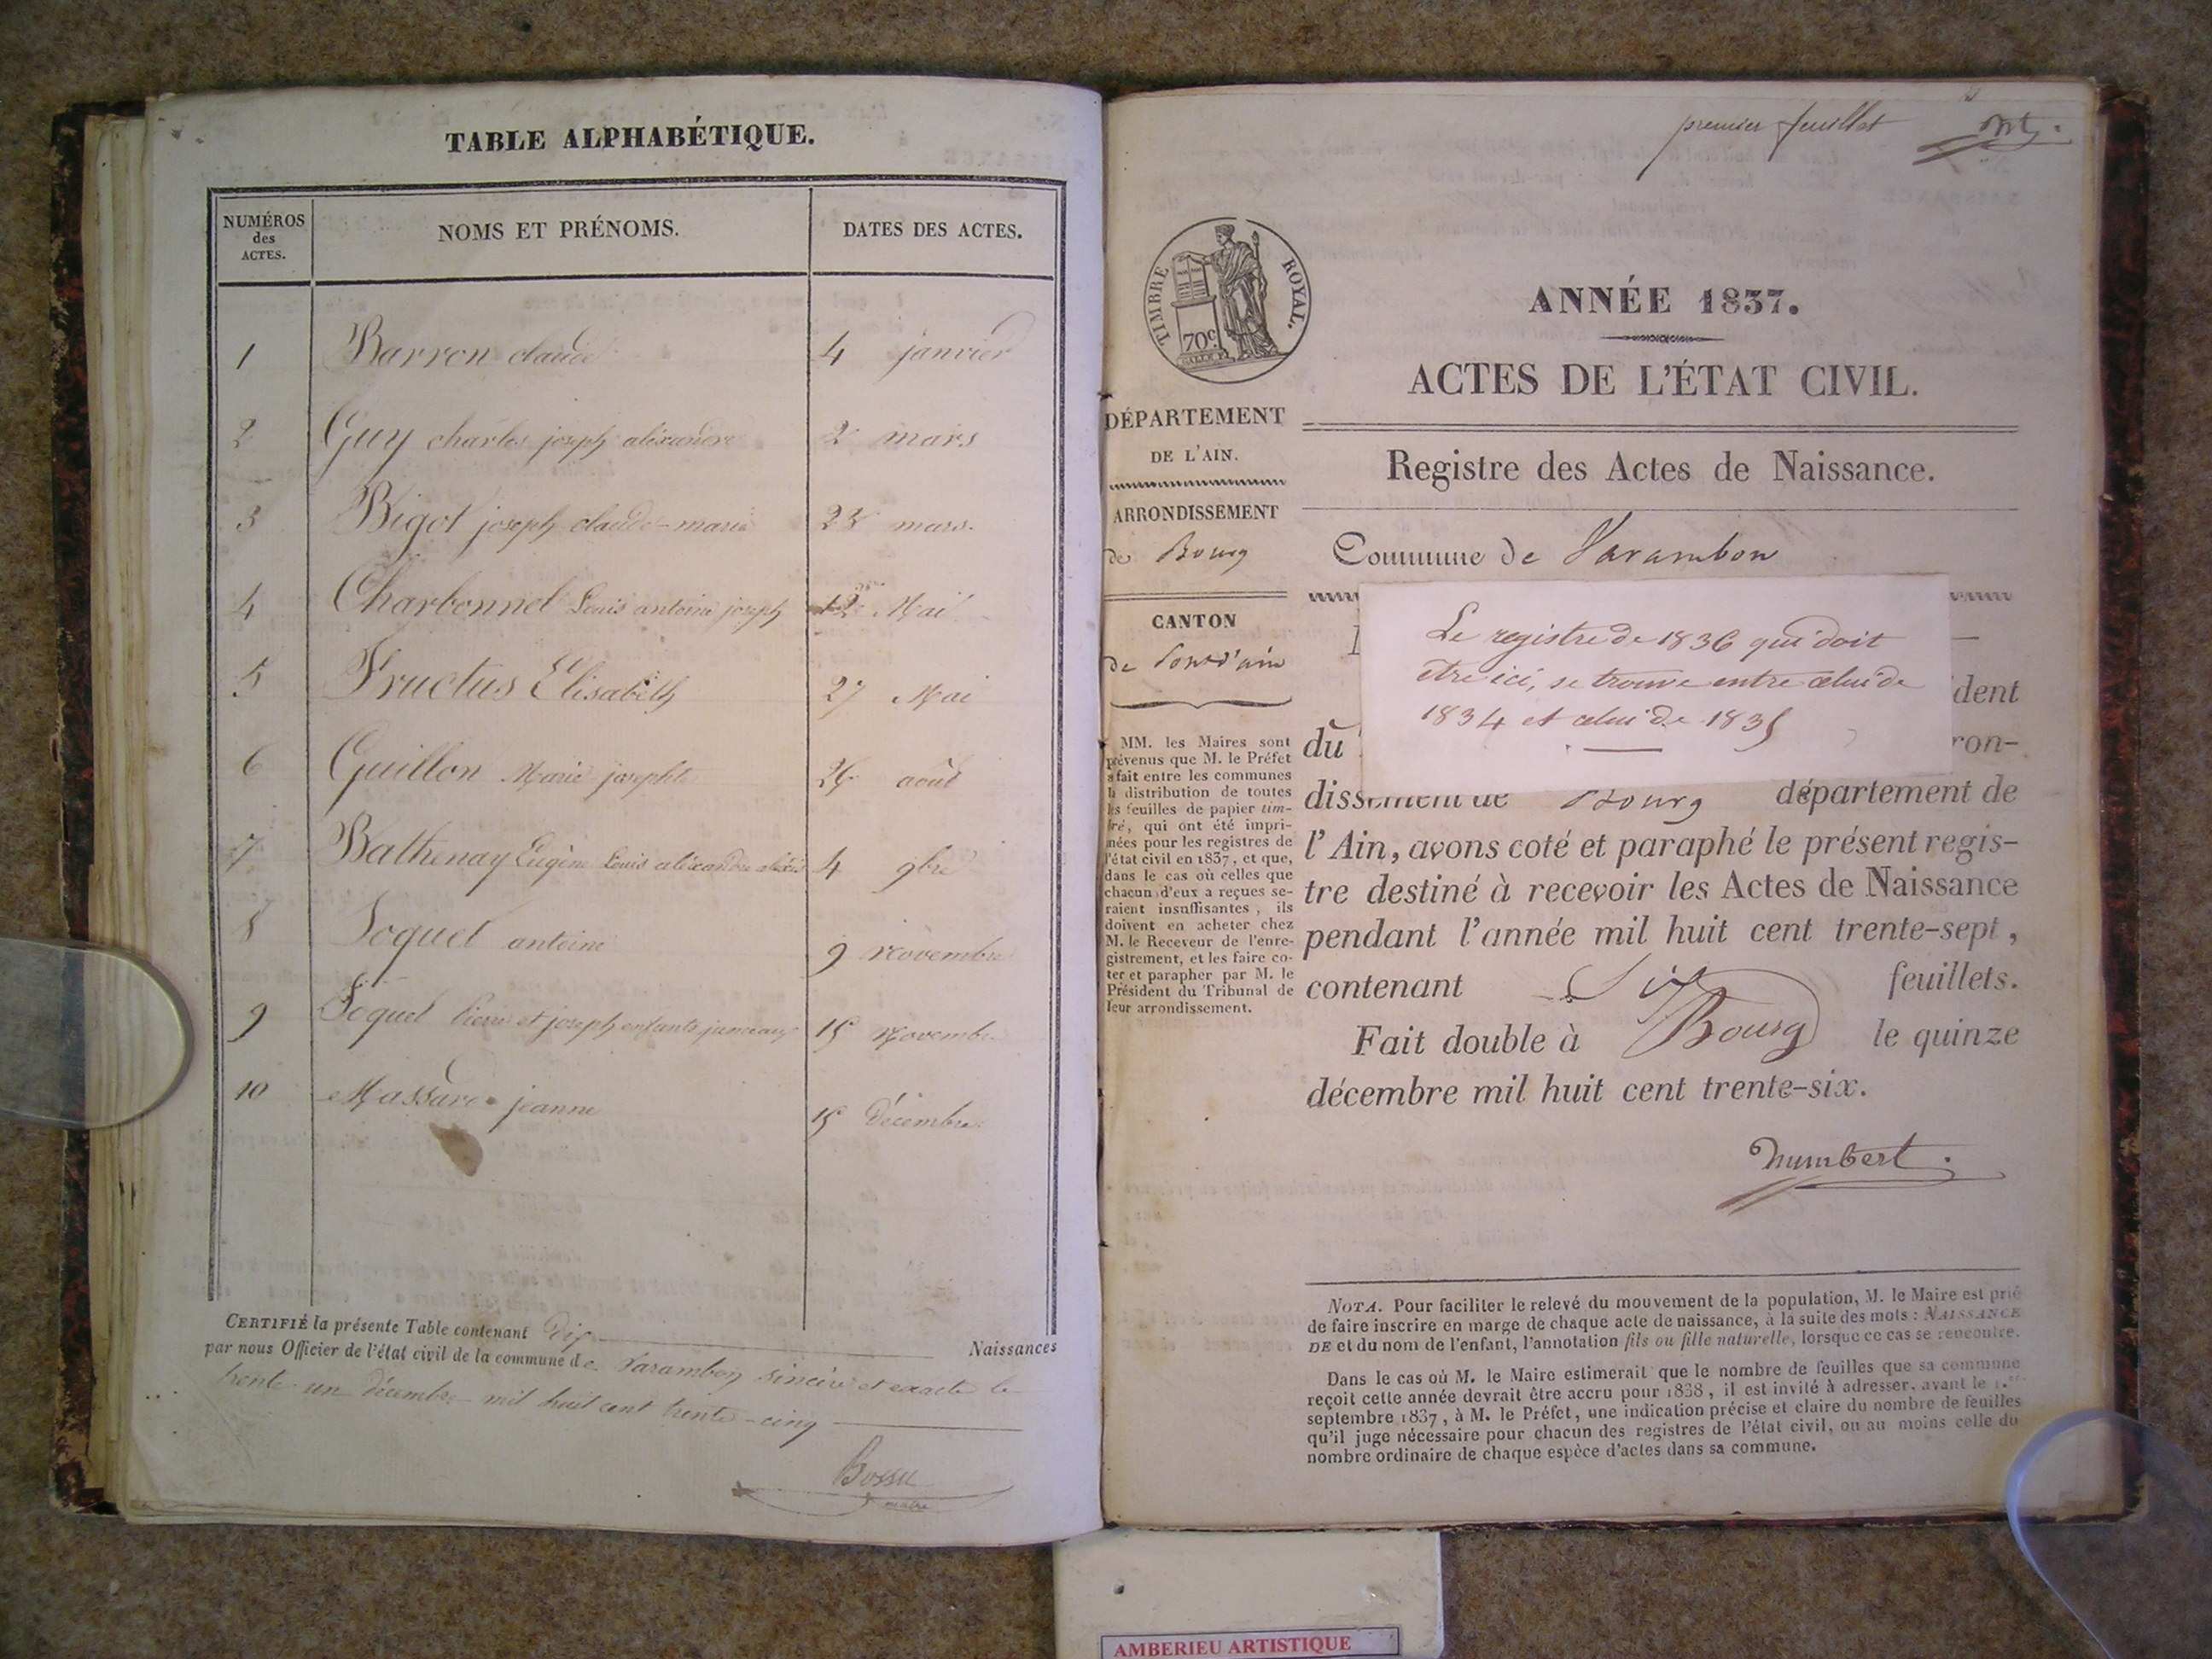 TABLE ALPHABÉTIQUE.
NUMÉROS des ACTES.
NOMS ET PRÉNOMS.
DATES DES ACTES.
1 Barron claude 4 janvier
2 Guy charles joseph alexandre 2 mars
3 Bigot joseph claude-marie 23 mars.
4 Charbonnel Louis antoine joseph Mai
5 Fructus Elisabeth 27 Mai
6 Guillon Marie josephte août
7 Bathenay Eugène Louis alexandre 4 9bre
8 Joquet antoine 9 novembre
9 Joquet Pierre et joseph enfants jumeaux 15 Novembre
10 Massard jeanne 15 Décembre
CERTIFIÉ la présente Table contenant Dix Naissances
par nous Officier de l'état civil de la commune de Varambon sincère et exacte le
trente-un décembre mil huit cent trente-cinq
Bossu
maire
premier feuillet
TIMBRE ROYAL.
70c.
ANNÉE 1837.
ACTES DE L'ÉTAT CIVIL.
DÉPARTEMENT
DE L'AIN.
ARRONDISSEMENT
de Bourg
CANTON
de Pont d'ain
MM. les Maires sont
prévenus que M. le Préfet
a fait entre les communes
la distribution de toutes
les feuilles de papier tim-
bré, qui ont été impri-
mées pour les registres de
l'état civil en 1837, et que,
dans le cas où celles que
chacun d'eux a reçues se-
raient insuffisantes, ils
doivent en acheter chez
M. le Receveur de l'enre-
gistrement, et les faire co-
ter et parapher par M. le
Président du Tribunal de
leur arrondissement.
Registre des Actes de Naissance.
Commune de Varambon
Le registre de 1836 qui doit
être ici, se trouve entre celui de
1834 et celui de 1835
dent
du ron-
dissement de Bourg département de
l'Ain, avons coté et paraphé le présent regis-
tre destiné à recevoir les Actes de Naissance
pendant l'année mil huit cent trente-sept,
contenant Six feuillets.
Fait double à Bourg le quinze
décembre mil huit cent trente-six.
Humbert
NOTA. Pour faciliter le relevé du mouvement de la population, M. le Maire est prié
de faire inscrire en marge de chaque acte de naissance, à la suite des mots : NAISSANCE
DE et du nom de l'enfant, l'annotation fils ou fille naturelle, lorsque ce cas se rencontre.
Dans le cas où M. le Maire estimerait que le nombre de feuilles que sa commune
reçoit cette année devrait être accru pour 1838, il est invité à adresser, avant le 1.er
septembre 1837, à M. le Préfet, une indication précise et claire du nombre de feuilles
qu'il juge nécessaire pour chacun des registres de l'état civil, ou au moins celle du
nombre ordinaire de chaque espèce d'actes dans sa commune.
AMBERIEU ARTISTIQUE